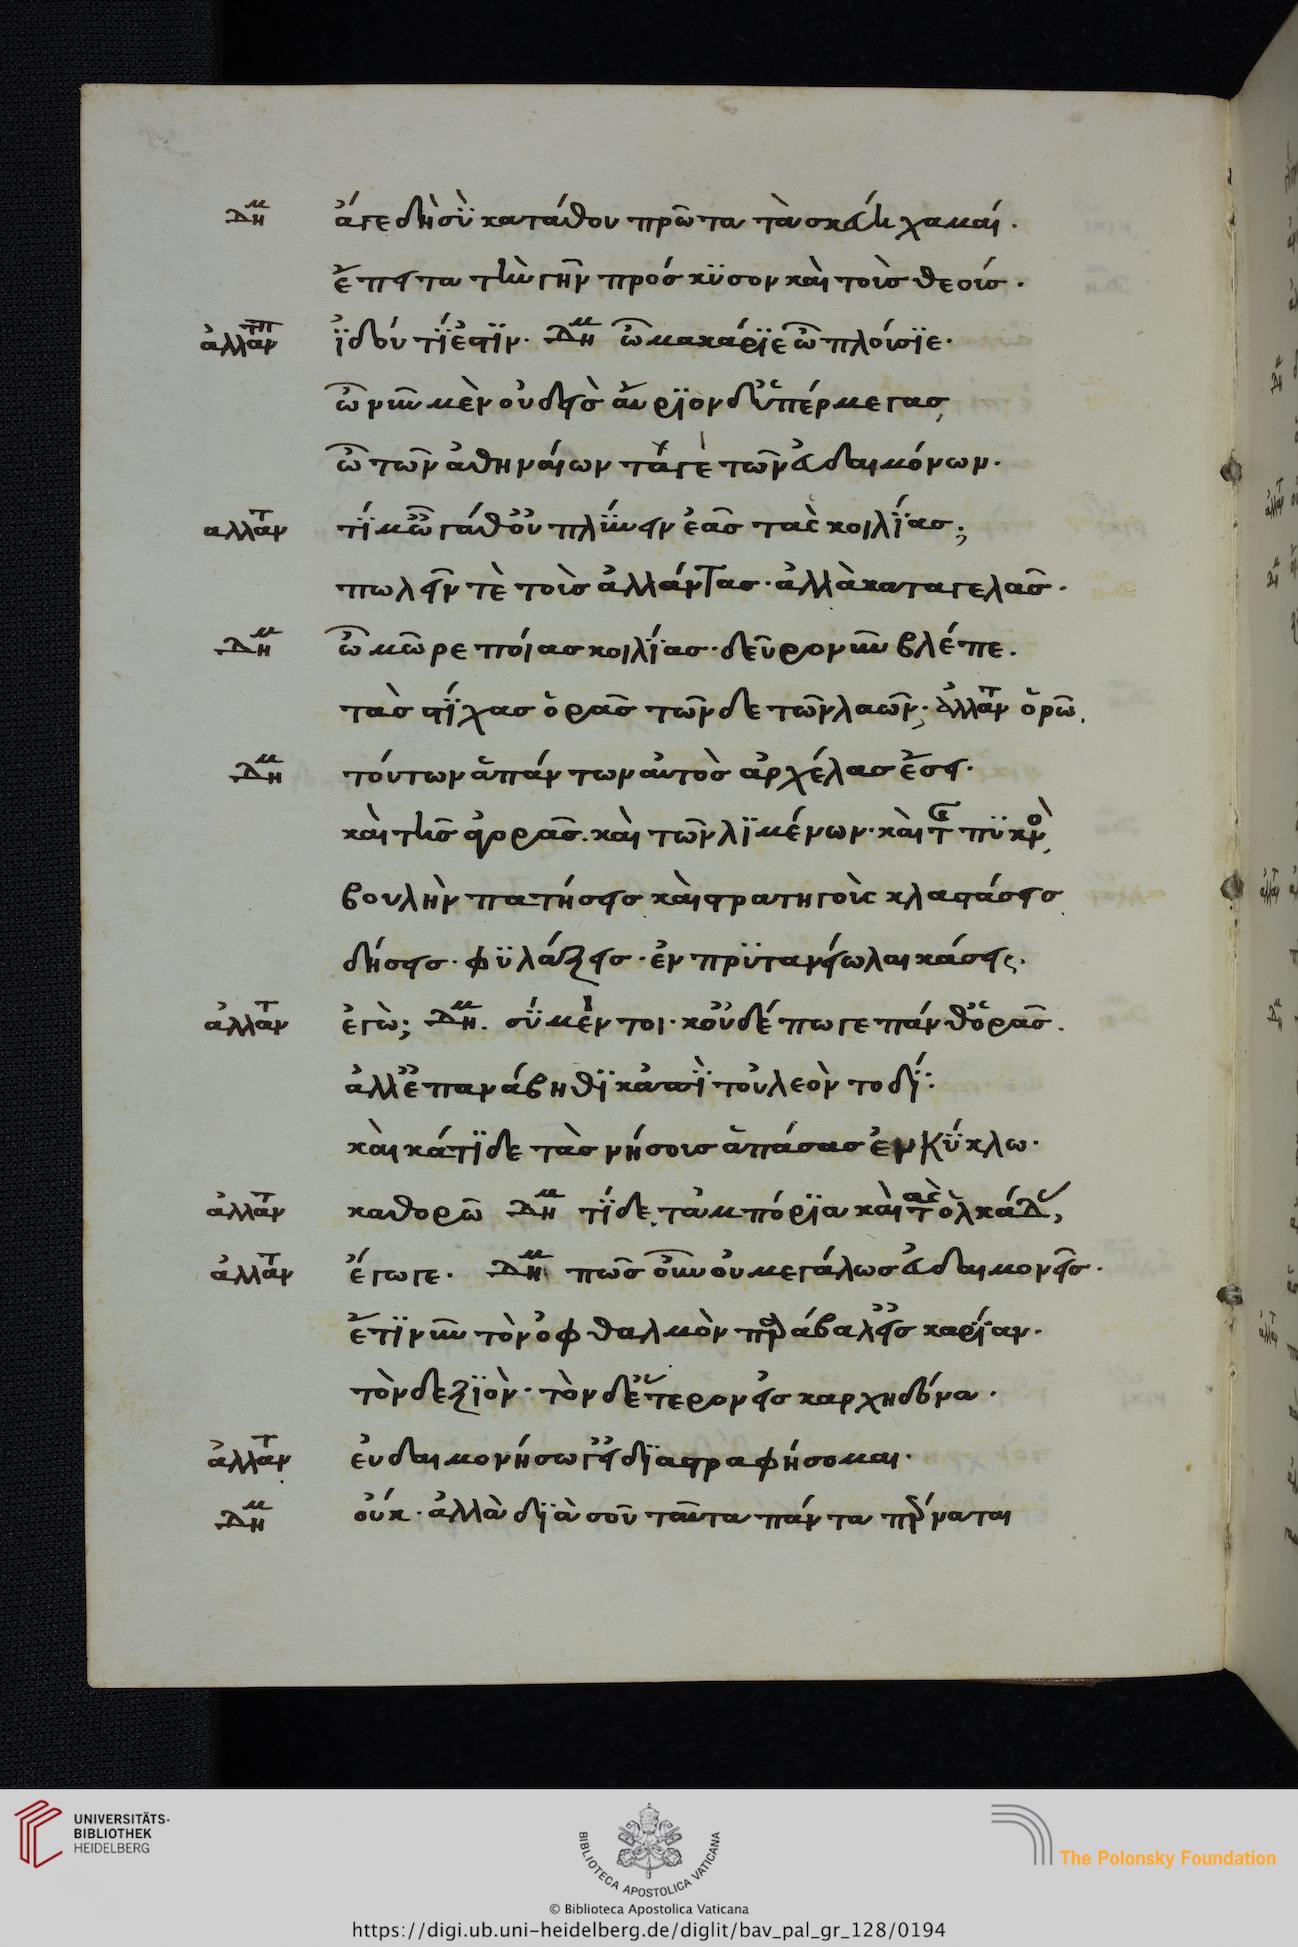 Δημ ἄγε δὴ σὺ κατάθου πρῶτα τὰ σκεύη χαμαί.
ἔπειτα τὴν γῆν πρόσκϋσον καὶ τοὶς θεοίς.
ἀλλαντπ ἰδού τί ἐστϊν. Δημ ὦ μακάρϊε ὦ πλούσϊε.
ὦ νῦν μὲν οὐδεὶς αὔρϊον δ' ὑπέρμεγας,
ὦ τῶν ἀθηναίων τάγὲ τῶν εὐδαιμόνων.
αλλαντ τί μ' ὦ γάθ' οὐ πλύνειν ἐᾶς τὰς κοιλίας;
πωλεῖν τὲ τοὶς ἀλλάντας. ἀλλὰ καταγελᾶς.
Δημ ὦ μῶρε ποίας κοιλίας. δεῦρο νῦν βλέπε.
τὰς στίχας ὁρᾶς τῶνδε τῶν λαῶν; ἀλλαντ ὁρῶ.
Δημ τούτων ἁπάντων αὐτὸς ἀρχέλας ἔσει.
καὶ τῆς ἀγορᾶς. καὶ τῶν λϊμένων. καὶ τῆς πϋκνὸς,
βουλὴν πατήσεις καὶ στρατηγοὺς κλαστάσεις
δήσεις. φϋλάξεις. ἐν πρϋτανείω λαικάσεις.
ἀλλαντ ἐγὼ; Δημ. σύ μέντοι. κοὐδέπω γε πάνθ' ὁρᾶς.
ἀλλ' ἐπανάβηθϊ κἀπὶ τοὐλεὸν τοδί:
καὶ κάτϊδε τὰς νήσους ἁπάσας ἐν κύκλω.
ἀλλαντ καθορῶ Δημ τί δε, τἀμπόρϊα καὶ τὰς ὁλκάδας;
ἀλλαντ ἔγωγε. Δημ πῶς οὖν οὐ μεγάλως εὐδαιμονεῖς.
ἔτϊ νῦν τὸν ὀφθαλμὸν παράβαλ' εἰς καρίαν.
τὸν δεξϊὸν. τὸν δ' ἕτερον εἰς καρχηδόνα.
ἀλλαντ εὐδαιμονήσω γ' εἰ δϊαστραφήσομαι.
Δημ οὐκ. ἀλλὰ δϊὰ σοῦ ταῦτα πάντα πέρναται
UNIVERSITÄTS-
BIBLIOTHEK
HEIDELBERG
BIBLIOTECA APOSTOLICA VATICANA
The Polonsky Foundation
© Biblioteca Apostolica Vaticana
https://digi.ub.uni-heidelberg.de/diglit/bav_pal_gr_128/0194